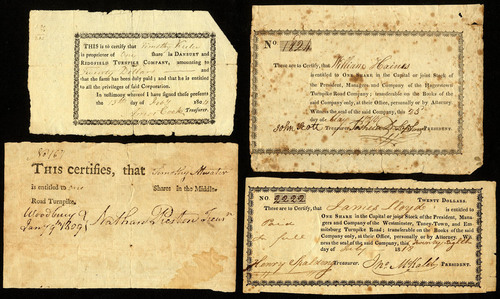 THIS is to certify that Timothy
is proprietor of One share in DANBURY and
RIDGEFIELD TURNPIKE COMPANY, amounting to
Twenty Dollars and
that the same has been duly paid; and that he is entitled
to all the privileges of said Corporation.
In testimony whereof I have signed these presents
the 13th day of 180
Treasurer.
No 1824
These are to Certify, that William Haines
is entitled to ONE SHARE in the Capital or joint Stock of the
President, Managers and Company of the Hagerstown
Turnpike Road Company; transferable on the Books of the
said Company only, at their Office, personally or by Attorney.
Witness the seal of the said Company, this 23
day
John Treasurer President
THIS certifies, that Timothy Atwater
is entitled to one Shares in the Middle-
Road Turnpike.
Woodbury
Jany 9th 1809
Nathan Preston
No. 2222 TWENTY DOLLARS.
These are to Certify, that James
is entitled to ONE SHARE in the Capital or joint Stock of the President, Mana-
gers and Company of the Westminster, Taney-Town, and Em-
mitsburg Turnpike Road; transferable on the Books of the said
Company only, at their Office, personally or by Attorney. WIT-
NESS the seal of the said Company, this twenty eighth
day of July 181
Paid
in full
Henry Spalding Treasurer. Jno. McKaleb President.